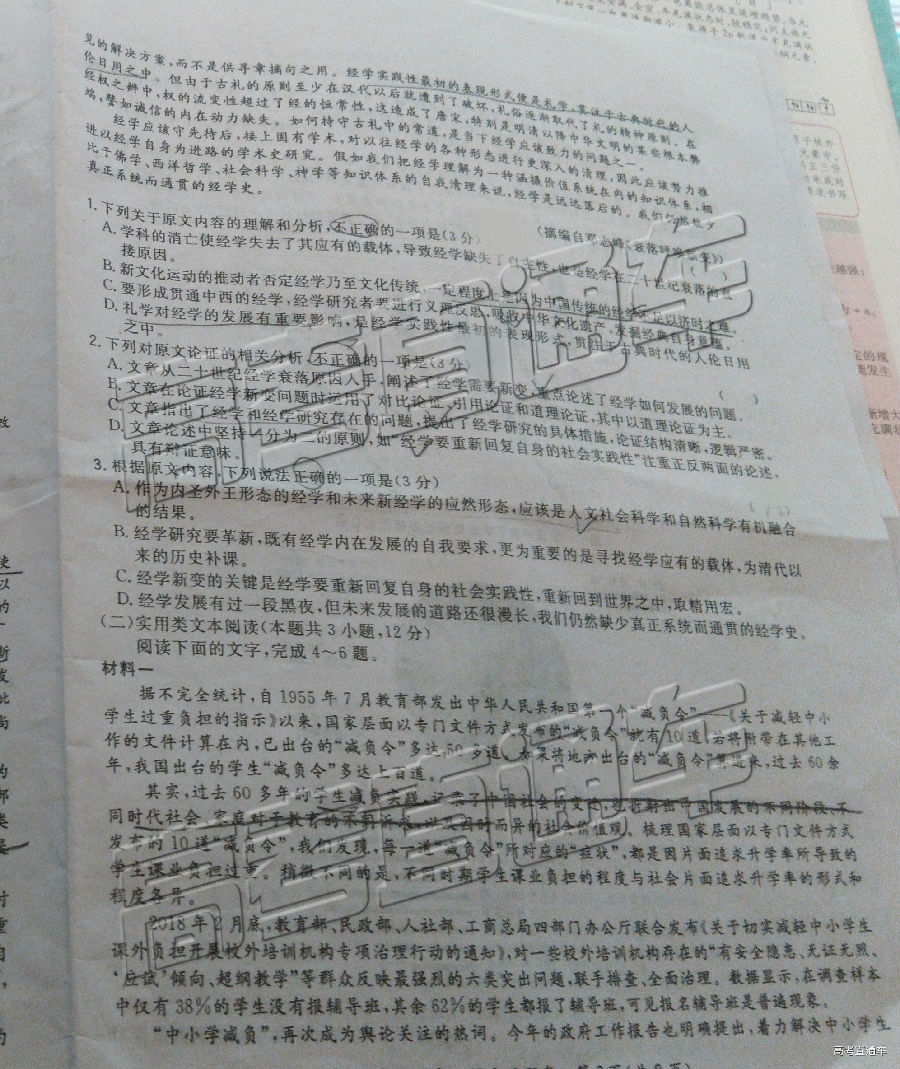 见的解决方案,而不是供寻章摘句之用。经学实践性最初的表现形式便是礼学,贯注于古典时代的人
伦日用之中。但由于古礼的原则至少在汉代以后就遭到了破坏,礼俗逐渐取代了礼的精神原则。在
经权之辨中,权的流变性超过了经的恒常性,这造成了唐宋,特别是明清以降中华文明的某些根本弊
端,譬如诚信的内在动力缺失。如何持守古礼中的常道,是当下经学应该致力的问题之一。
经学应该守先待后,接上固有学术,对以往经学的各种形态进行更深入的清理,因此应该努力推
进以经学自身为进路的学术史研究。假如我们把经学理解为一种涵摄价值系统在内的知识体系,相
比于佛学、西洋哲学、社会科学、神学等知识体系的自我清理来说,经学是远远落后的。我们仍然缺少
真正系统而通贯的经学史。
(摘编自邓志峰
1.下列关于原文内容的理解和分析,不正确的一项是(3分)
A.学科的消亡使经学失去了其应有的载体,导致经学缺失了自主性,也是经学在二十世纪衰落的直
接原因。
B.新文化运动的推动者否定经学乃至文化传统,一定程度上是因为中国传统的经学不足以济时之难。
C.要形成贯通中西的经学,经学研究者要进行义理汉思,吸收中华文化遗产、发掘经典自身意蕴。
D.礼学对经学的发展有重要影响,是经学实践性最初的表现形式,贯注于古典时代的人伦日用
之中。
2.下列对原文论证的相关分析,不正确的一项是(3分)
A.文章从二十世纪经学衰落原因入手,阐述了经学需要新变,重点论述了经学如何发展的问题。
B.文章在论证经学新变问题时运用了对比论证、引用论证和道理论证,其中以道理论证为主。
C.文章指出了经学和经学研究存在的问题,提出了经学研究的具体措施,论证结构清晰,逻辑严密。
D.文章论述中坚持一分为二的原则,如“经学要重新回复自身的社会实践性”注重正反两面的论述,
具有辩证意味。
3.根据原文内容,下列说法正确的一项是(3分)
A.作为内圣外王形态的经学和未来新经学的应然形态,应该是人文社会科学和自然科学有机融合
的结果。
B.经学研究要革新,既有经学内在发展的自我要求,更为重要的是寻找经学应有的载体,为清代以
来的历史补课。
C.经学新变的关键是经学要重新回复自身的社会实践性,重新回到世界之中,取精用宏。
D.经学发展有过一段黑夜,但未来发展的道路还很漫长,我们仍然缺少真正系统而通贯的经学史。
(二)实用类文本阅读(本题共3小题,12分)
阅读下面的文字,完成4~6题。
材料一
据不完全统计,自1955年7月教育部发出中华人民共和国第一个“减负令”——《关于减轻中小
学生过重负担的指示》以来,国家层面以专门文件方式发布的“减负令”就有10道,若将附带在其他工
作的文件计算在内,已出台的“减负令”多达50多道。如果将地方出台的“减负令”算进来,过去60余
年,我国出台的学生“减负令”多达上百道。
其实,过去60多年的学生减负实践,记录了中国社会的变迁,也折射出中国发展的不同阶段、不
同时代社会、家庭对于教育的不同诉求,以及因时而异的社会价值观。梳理国家层面以专门文件方式
发布的10道“减负令”,我们发现,每一道“减负令”所对应的“症状”,都是因片面追求升学率所导致的
学生课业负担过重。稍微不同的是,不同时期学生课业负担的程度与社会片面追求升学率的形式和
程度各异。
2018年2月底,教育部、民政部、人社部、工商总局四部门办公厅联合发布《关于切实减轻中小学生
课外负担开展校外培训机构专项治理行动的通知》,对一些校外培训机构存在的“有安全隐患、无证无照、
‘应试’倾向、超纲教学”等群众反映最强烈的六类突出问题,联手排查、全面治理。数据显示,在调查样本
中仅有38%的学生没有报辅导班,其余62%的学生都报了辅导班,可见报名辅导班是普遍现象。
“中小学减负”,再次成为舆论关注的热词。今年的政府工作报告也明确提出,着力解决中小学生
高考直通车
高考直通车
高考直通车
高考直通车